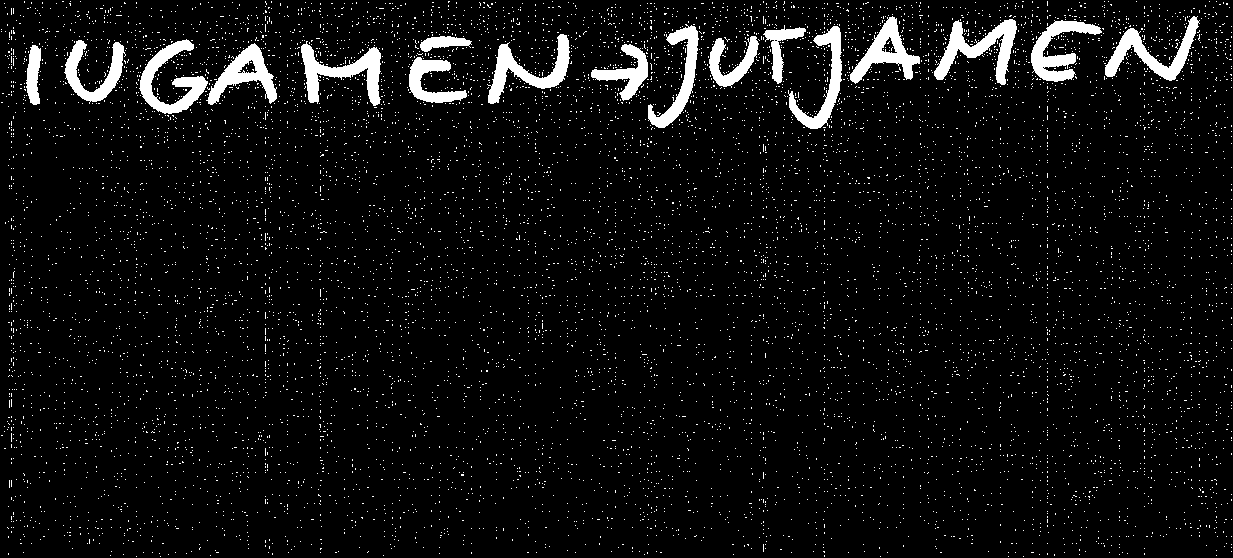 IUGAMEN→JUTJAMEN